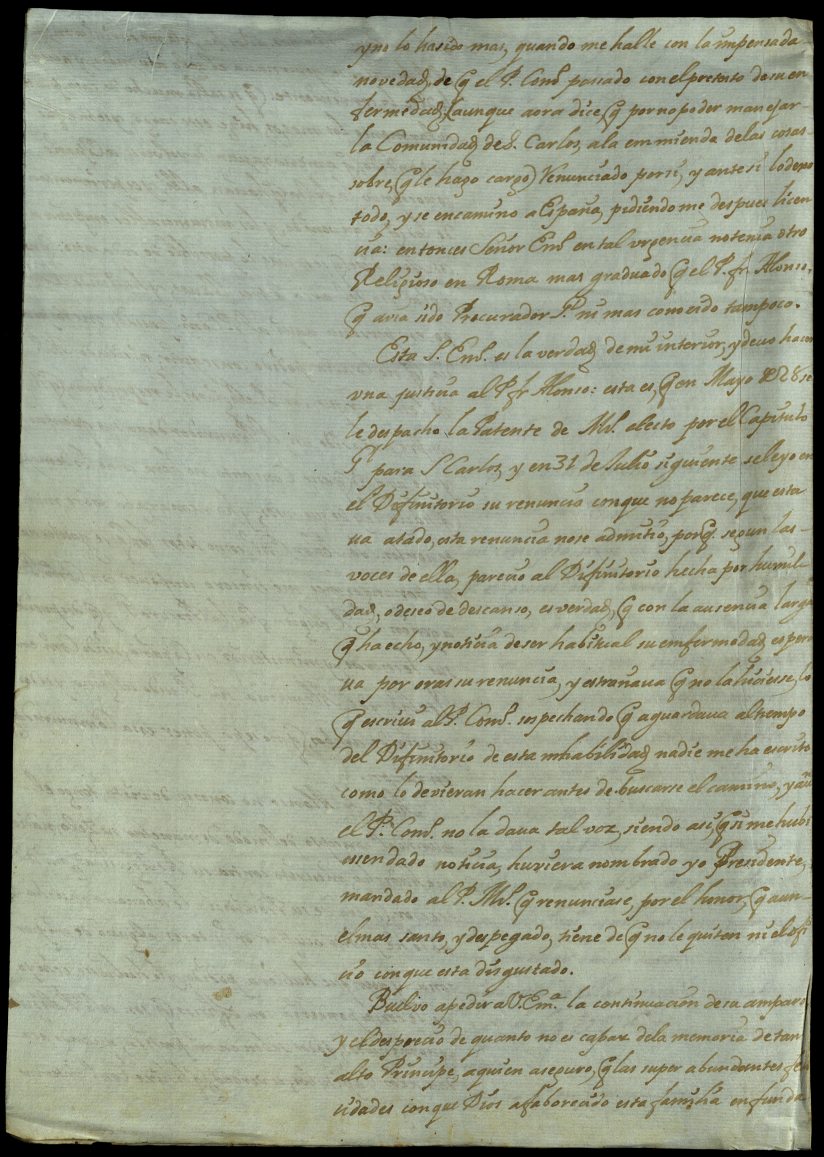 y no lo ha sido mas, quando me hallè con la impensada
novedad, de q̃ el P. Com.o passado con el pretexto de su en
fermedad, (aunque aora dice q̃ por no poder manejar
la Comunidad de S. Carlos, a la emmienda de las cosas
sobre, q̃ le hago cargo) Renunciado por si, y ante si lo dexo
todo, y se encamino a España, pidiendome despues licen
cia: entonces Señor Em.o en tal urgencia no tenia otro
Religioso en Roma mas graduado q̃ el P. fr. Alonso,
q̃ avia sido Procurador G.l ni mas conocido tampoco.
Esta S. Em.o es la verdad de mi interior, y devo hacer
una justicia al P. fr. Alonso: esta es, q̃ en Mayo de 28 se
le despacho la Patente de Mr̃o. electo por el Capitulo
G.l para S. Carlos, y en 31 de Julio siguiente se leyo en
el Difinitorio su renuncia conque no parece, que esta
va atado, esta renuncia no se admitio, porq̃. segun las
voces de ella, parecio al Difinitorio hecha por humil
dad, o deseo de descanso, es verdad, q̃ con la ausencia larga
q̃ ha echo, y noticia de ser habitual su enfermedad espera
va por oras su renuncia, y estrañava q̃ no la hiciesse, lo
q̃ escrivi al P. Com.o sospechando q̃ aguardava al tiempo
del Difinitorio de esta inhabilidad nadie me ha escrito
como lo devieran hacer antes de buscarse el camino, y aun
el P. Com.o no la dava tal voz, siendo asi, q̃ si me hubi
essen dado noticia, huviera nombrado yo Presidente,
mandado al P. Mr̃o. q̃ renunciase, por el honor, q̃ aun
el mas santo, y despegado, tiene de q̃ no le quiten ni el ofi
cio conque esta disgustado.
Buelvo a pedir a V. Em.a la continuacion de su amparo
y el desprecio de quanto no es capaz de la memoria de tan
alto Principe, a quien aseguro, q̃ las super abundantes feli
cidades conque Dios a faborecido esta familia en funda